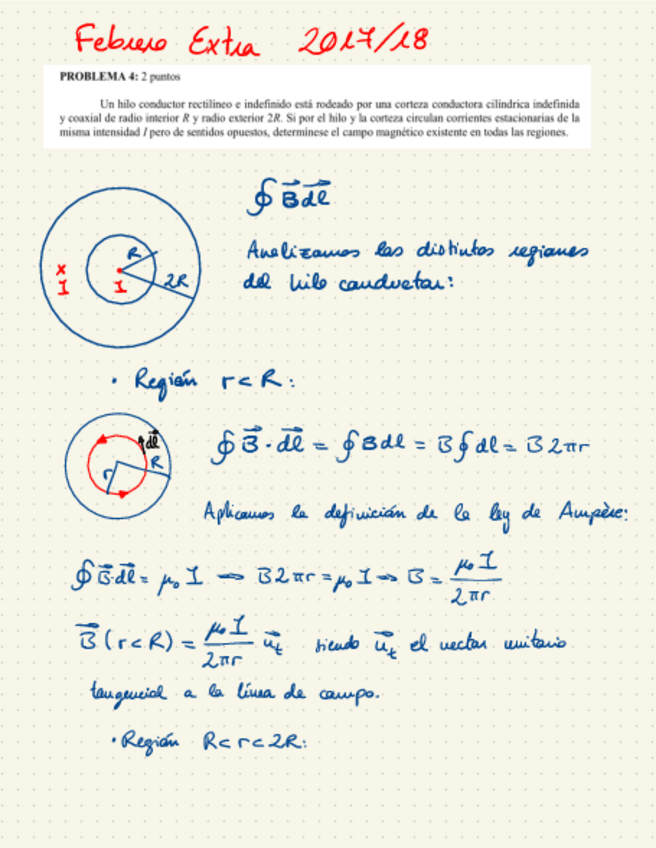 Febrero Extra 2017/18
PROBLEMA 4: 2 puntos
Un hilo conductor rectilíneo e indefinido está rodeado por una corteza conductora cilíndrica indefinida
y coaxial de radio interior R y radio exterior 2R. Si por el hilo y la corteza circulan corrientes estacionarias de la
misma intensidad I pero de sentidos opuestos, determínese el campo magnético existente en todas las regiones.
∮ B⃗ dl⃗
R
2R
x
I
I
Analizamos las distintas regiones
del hilo conductor:
• Región r < R:
dl⃗
R
r
∮ B⃗ · dl⃗ = ∮ B dl = B ∮ dl = B 2πr
Aplicamos la definición de la ley de Ampère:
∮ B⃗·dl⃗ = μ₀ I → B 2πr = μ₀ I → B = μ₀ I / 2πr
B⃗ (r < R) = μ₀ I / 2πr u⃗t siendo u⃗t el vector unitario
tangencial a la línea de campo.
• Región R < r < 2R: